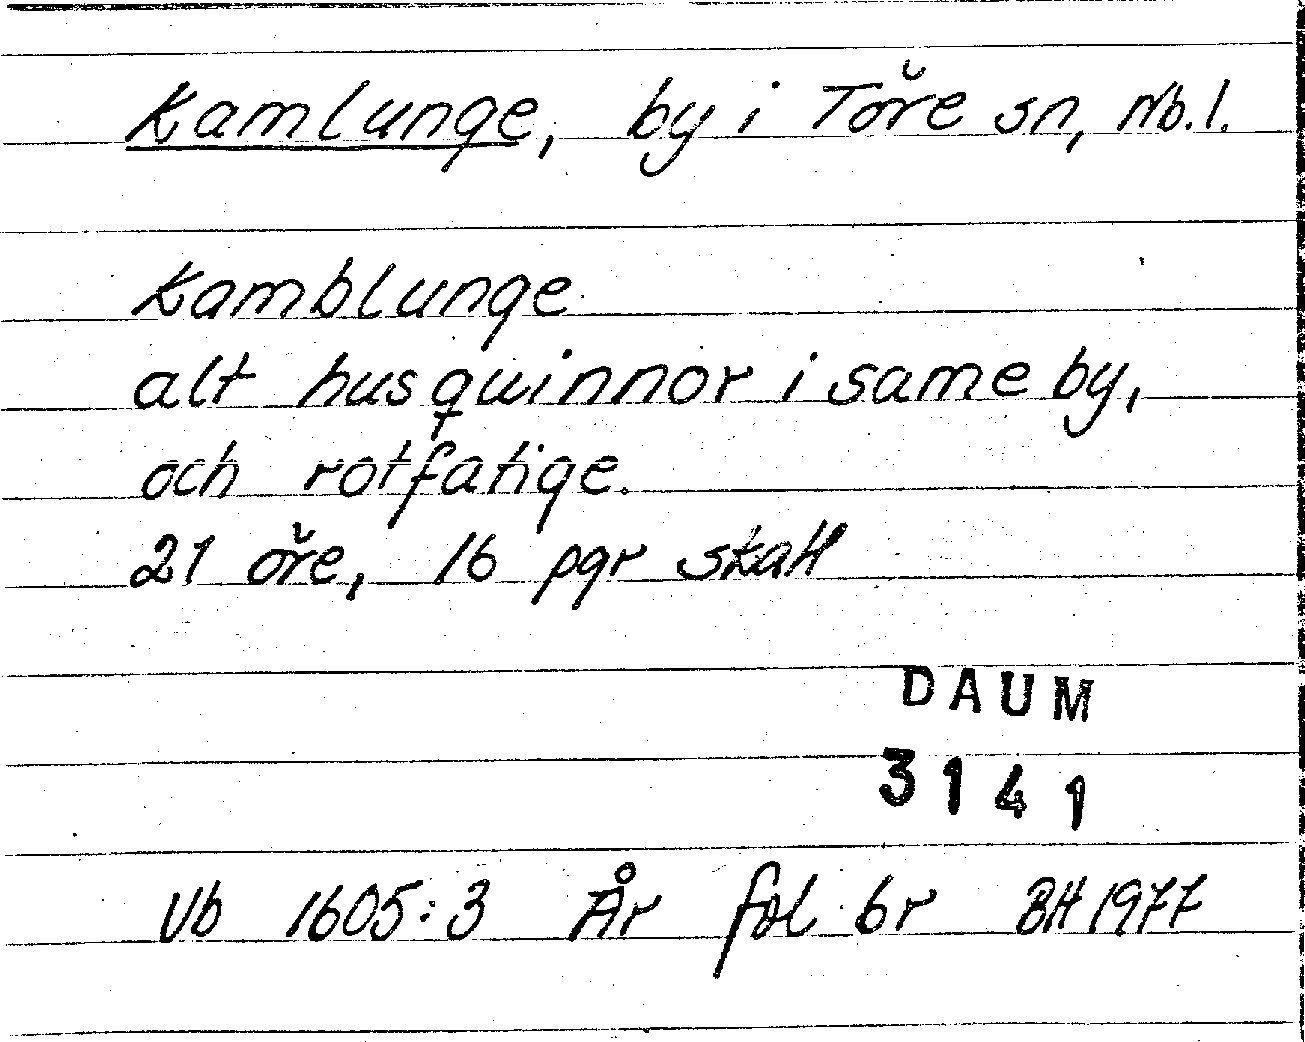 Kamlunge, by i Töre sn, Nb.l.
Kamblunge
alt husquinnor i same by,
och rotfatige.
21 öre, 16 pgr skatt
DAUM
3141
Vb 1605:3 År fol 6r BH 1977